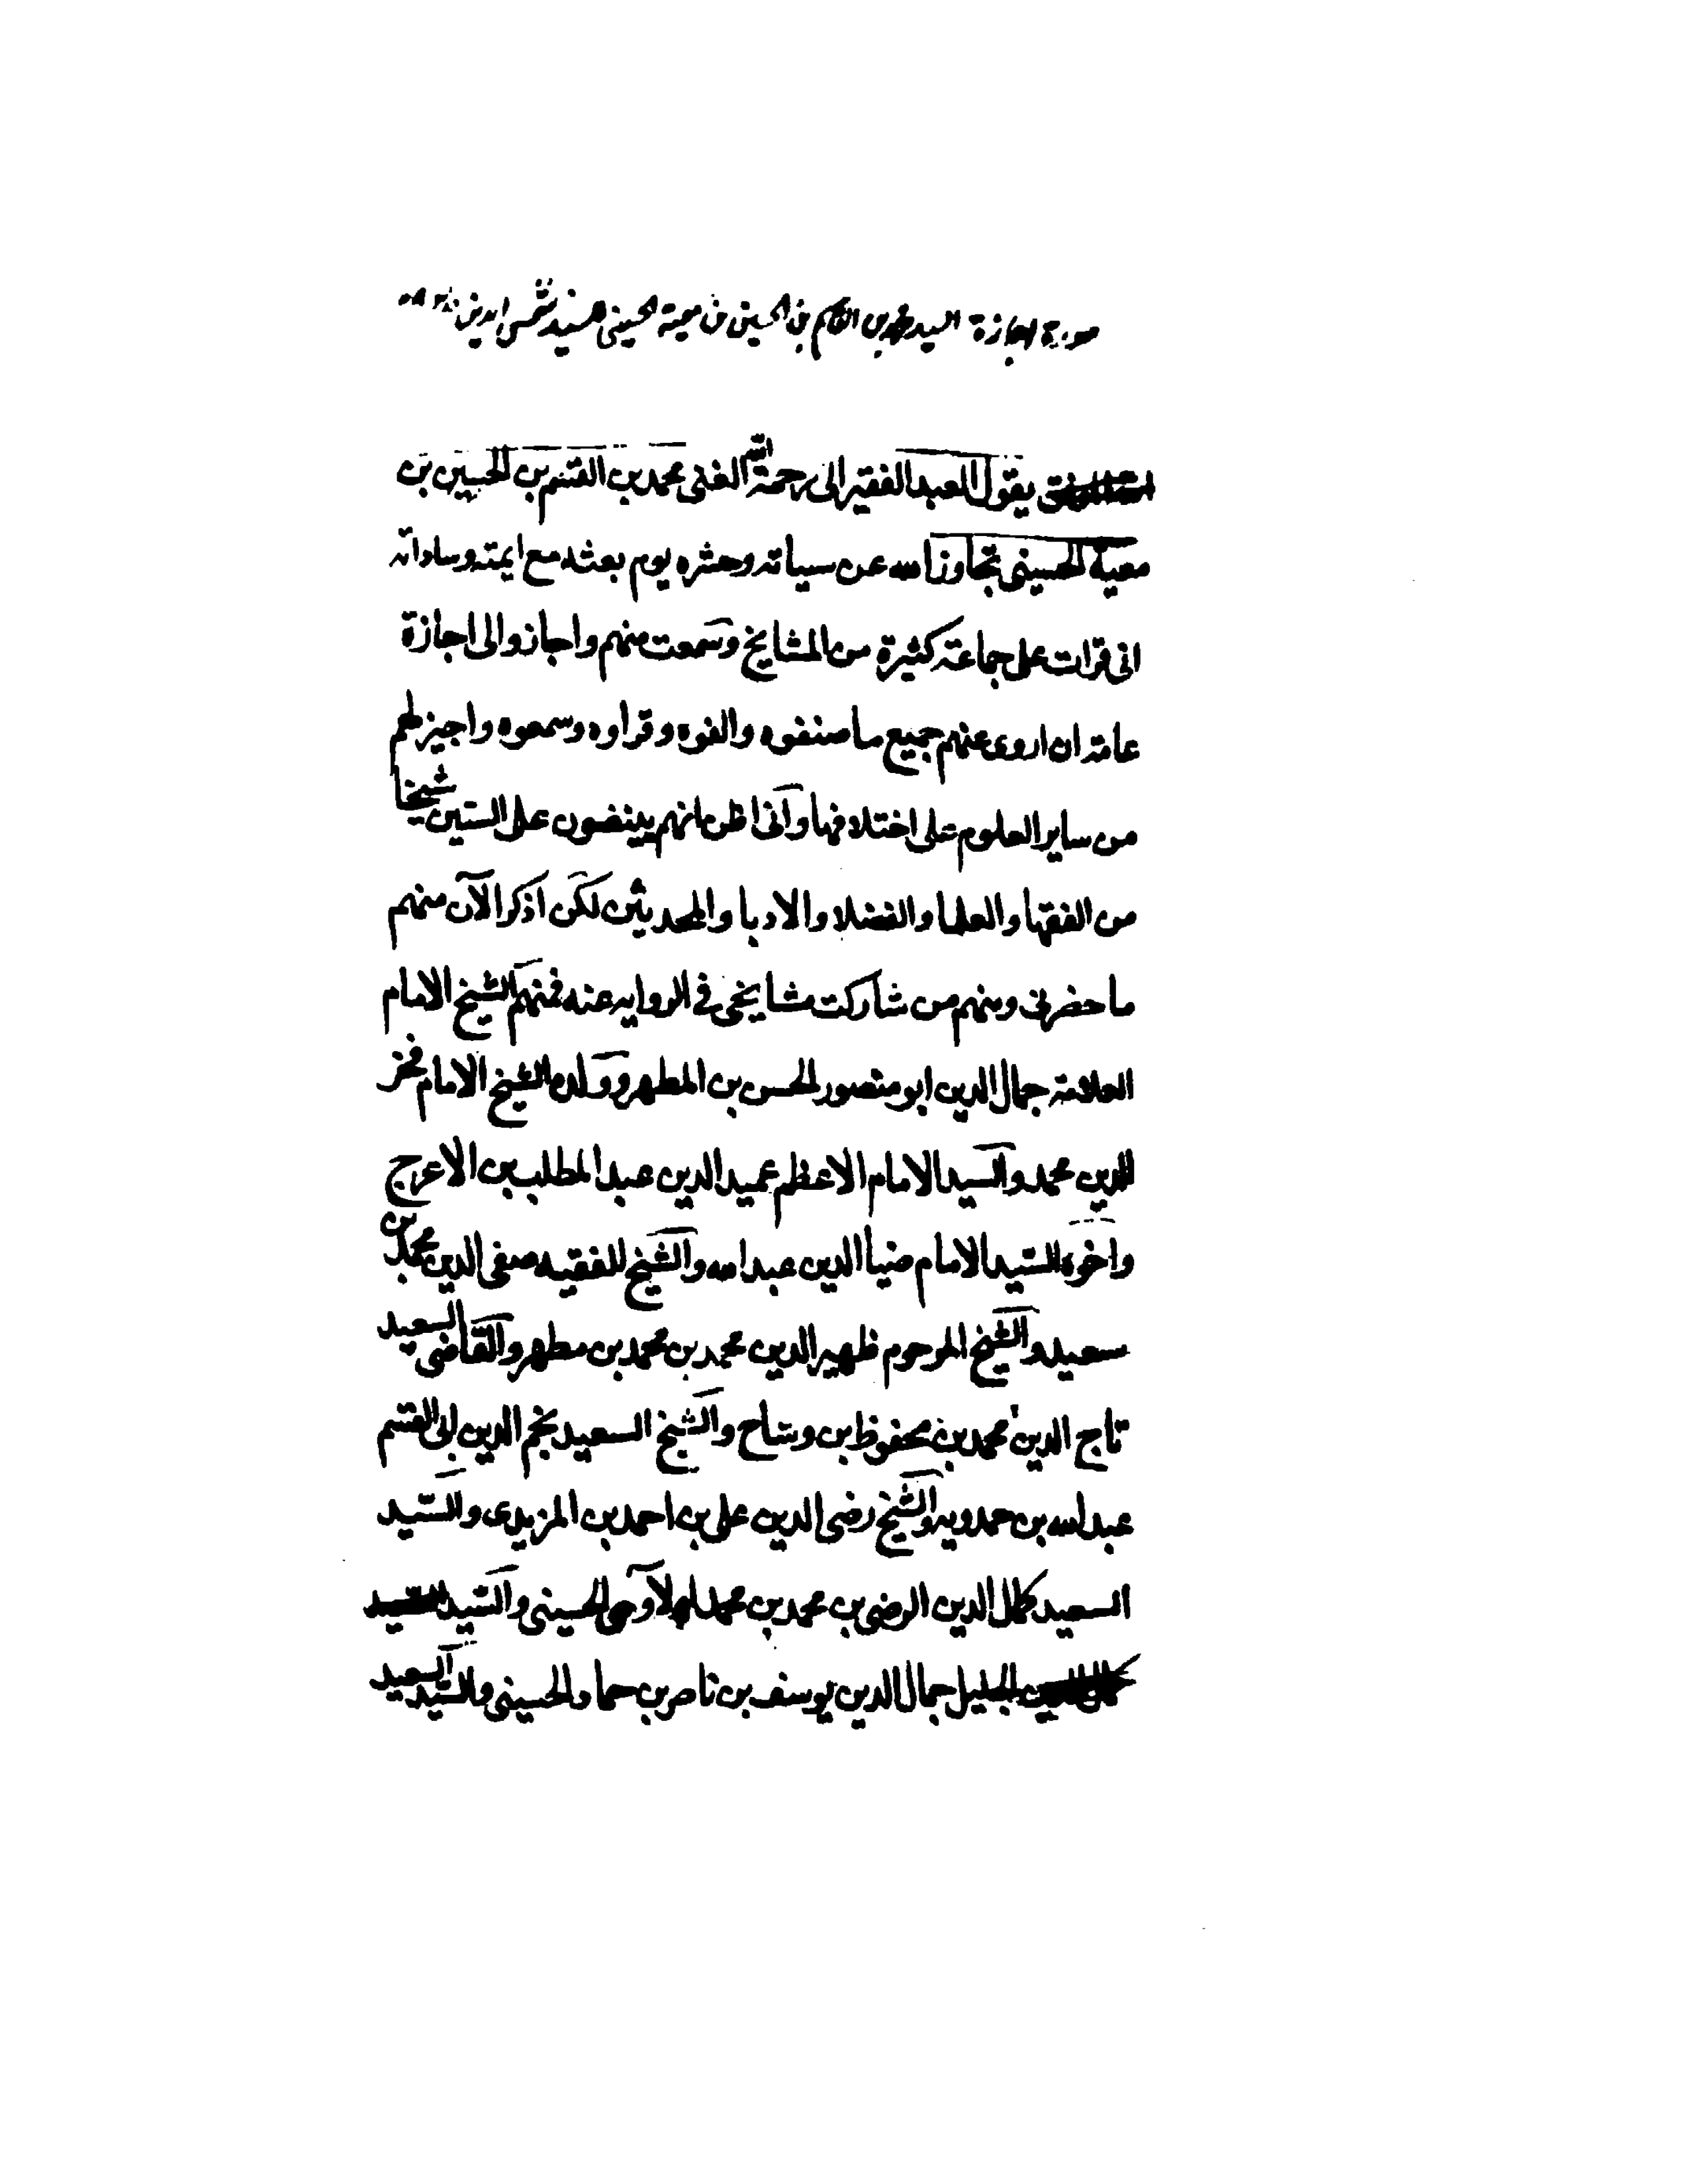 صورة اجازة السيد محمد بن القاسم بن الحسين بن معية الحسينى للسيد شمس الدين
يقول العبد الفقير الى رحمة الله الغنى محمد بن القسم بن الحسين بن
معية الحسينى تجاوز الله عن سياته وحشره يوم بعثه مع ايمته وساداته
انى قرات على جماعة كثيرة من المشايخ وسمعت منهم واجازوا لى اجازة
عامة ان اروى عنهم جميع ما صنفوه والفوه وقراوه وسمعوه واجيز لهم
من ساير العلوم على اختلافها وانى اظن انهم ينيفون على الستين شيخا
من الفقها والعلما والفضلا والادبا والمحدثين لكن اذكر الآن منهم
ما حضرنى ومنهم من شاركت مشايخى فى الروايه عنه فمنهم الشيخ الامام
العلامة جمال الدين ابو منصور الحسن بن المطهر وولده الشيخ الامام فخر
الدين محمد والسيد الامام الاعظم عميد الدين عبد المطلب بن الاعرج
واخوه السيد الامام ضيا الدين عبد الله والشيخ الفقيه صفى الدين محمد بن
سعيد والشيخ المرحوم ظهير الدين محمد بن محمد بن مطهر والقاضى السعيد
تاج الدين محمد بن محفوظ بن وشاح والشيخ السعيد نجم الدين ابى القسم
عبد الله بن حمدويه والشيخ رضى الدين على بن احمد بن المزيدى والسيد
السعيد كمال الدين الرضى بن محمد بن محمد الآوى الحسينى والسيد
الجليل جمال الدين يوسف بن ناصر بن حماد الحسينى والسيد السعيد